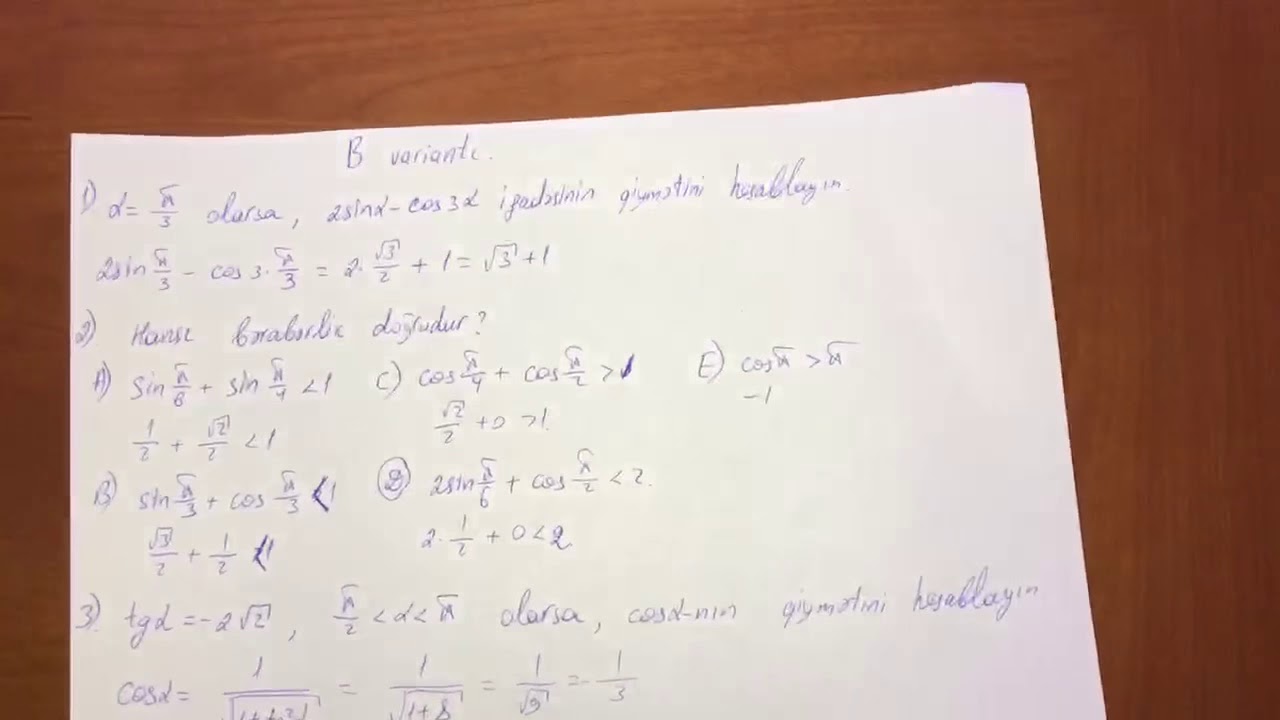 B variantı.
1) α = π/3 olarsa, 2sinα - cos3α ifadəsinin qiymətini hesablayın.
2sin π/3 - cos 3·π/3 = 2·√3/2 + 1 = √3 + 1
2) Hansı bərabərlik doğrudur?
A) sin π/6 + sin π/4 < 1 C) cos π/4 + cos π/2 > 1 E) cosπ > π
1/2 + √2/2 < 1 √2/2 + 0 > 1. -1
B) sin π/3 + cos π/3 < 1 D) 2sin π/6 + cos π/2 < 2.
√3/2 + 1/2 < 1 2·1/2 + 0 < 2
3) tgα = -2√2, π/2 < α < π olarsa, cosα-nın qiymətini hesablayın
cosα = 1/√ = 1/√1+8 = 1/√9 = -1/3